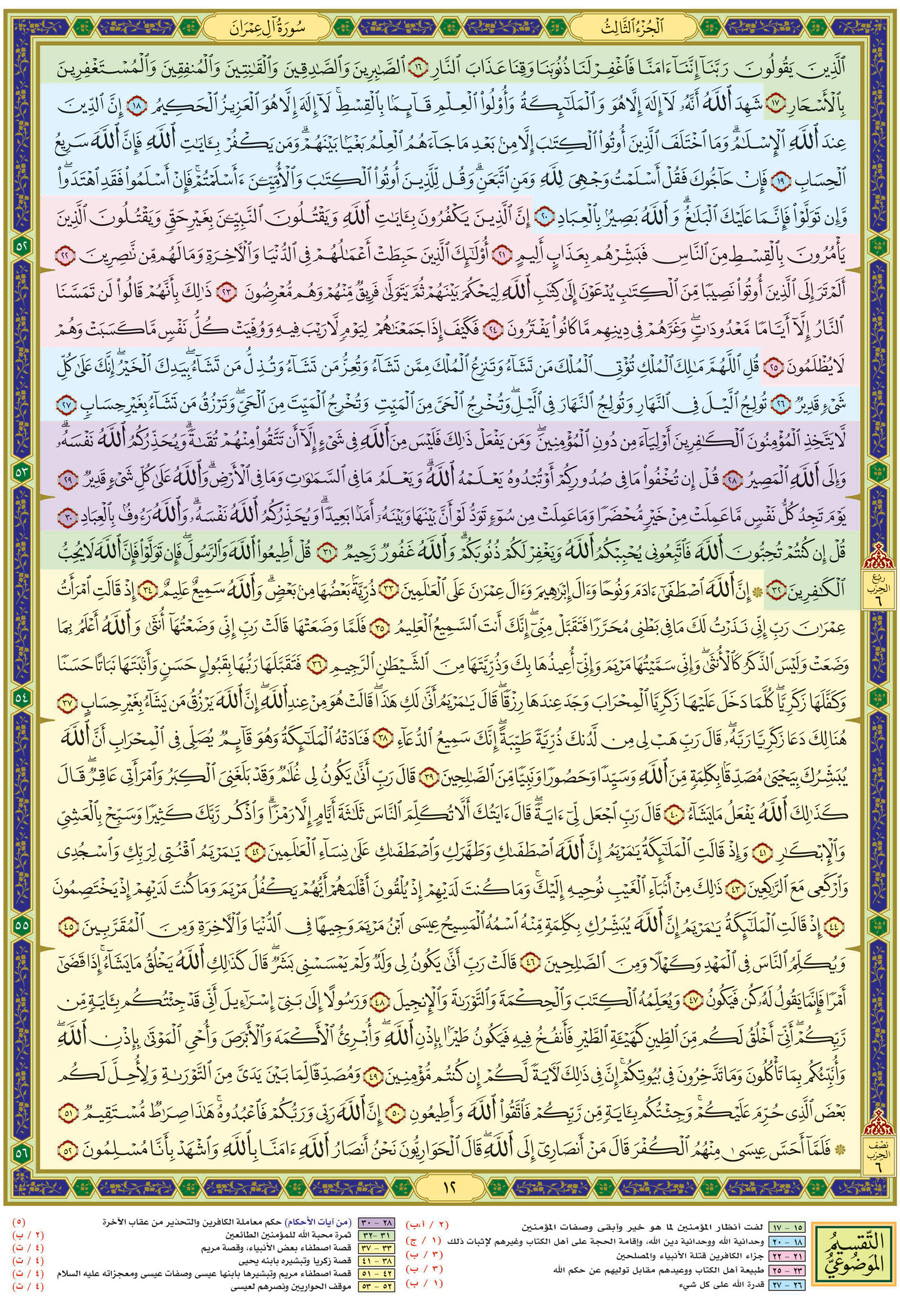 الجُزْءُ الثَّالِثُ
سُورَةُ آلِ عِمْرَانَ
ٱلَّذِينَ يَقُولُونَ رَبَّنَآ إِنَّنَآ ءَامَنَّا فَٱغْفِرْ لَنَا ذُنُوبَنَا وَقِنَا عَذَابَ ٱلنَّارِ ١٦ ٱلصَّٰبِرِينَ وَٱلصَّٰدِقِينَ وَٱلْقَٰنِتِينَ وَٱلْمُنفِقِينَ وَٱلْمُسْتَغْفِرِينَ
بِٱلْأَسْحَارِ ١٧ شَهِدَ ٱللَّهُ أَنَّهُۥ لَآ إِلَٰهَ إِلَّا هُوَ وَٱلْمَلَٰٓئِكَةُ وَأُو۟لُوا۟ ٱلْعِلْمِ قَآئِمًۢا بِٱلْقِسْطِۚ لَآ إِلَٰهَ إِلَّا هُوَ ٱلْعَزِيزُ ٱلْحَكِيمُ ١٨ إِنَّ ٱلدِّينَ
عِندَ ٱللَّهِ ٱلْإِسْلَٰمُۗ وَمَا ٱخْتَلَفَ ٱلَّذِينَ أُوتُوا۟ ٱلْكِتَٰبَ إِلَّا مِنۢ بَعْدِ مَا جَآءَهُمُ ٱلْعِلْمُ بَغْيًۢا بَيْنَهُمْۗ وَمَن يَكْفُرْ بِـَٔايَٰتِ ٱللَّهِ فَإِنَّ ٱللَّهَ سَرِيعُ
ٱلْحِسَابِ ١٩ فَإِنْ حَآجُّوكَ فَقُلْ أَسْلَمْتُ وَجْهِىَ لِلَّهِ وَمَنِ ٱتَّبَعَنِۗ وَقُل لِّلَّذِينَ أُوتُوا۟ ٱلْكِتَٰبَ وَٱلْأُمِّيِّـۧنَ ءَأَسْلَمْتُمْۚ فَإِنْ أَسْلَمُوا۟ فَقَدِ ٱهْتَدَوا۟ۖ
وَّإِن تَوَلَّوْا۟ فَإِنَّمَا عَلَيْكَ ٱلْبَلَٰغُۗ وَٱللَّهُ بَصِيرٌۢ بِٱلْعِبَادِ ٢٠ إِنَّ ٱلَّذِينَ يَكْفُرُونَ بِـَٔايَٰتِ ٱللَّهِ وَيَقْتُلُونَ ٱلنَّبِيِّـۧنَ بِغَيْرِ حَقٍّ وَيَقْتُلُونَ ٱلَّذِينَ
يَأْمُرُونَ بِٱلْقِسْطِ مِنَ ٱلنَّاسِ فَبَشِّرْهُم بِعَذَابٍ أَلِيمٍ ٢١ أُو۟لَٰٓئِكَ ٱلَّذِينَ حَبِطَتْ أَعْمَٰلُهُمْ فِى ٱلدُّنْيَا وَٱلْءَاخِرَةِ وَمَا لَهُم مِّن نَّٰصِرِينَ ٢٢
أَلَمْ تَرَ إِلَى ٱلَّذِينَ أُوتُوا۟ نَصِيبًا مِّنَ ٱلْكِتَٰبِ يُدْعَوْنَ إِلَىٰ كِتَٰبِ ٱللَّهِ لِيَحْكُمَ بَيْنَهُمْ ثُمَّ يَتَوَلَّىٰ فَرِيقٌ مِّنْهُمْ وَهُم مُّعْرِضُونَ ٢٣ ذَٰلِكَ بِأَنَّهُمْ قَالُوا۟ لَن تَمَسَّنَا
ٱلنَّارُ إِلَّآ أَيَّامًا مَّعْدُودَٰتٍۖ وَغَرَّهُمْ فِى دِينِهِم مَّا كَانُوا۟ يَفْتَرُونَ ٢٤ فَكَيْفَ إِذَا جَمَعْنَٰهُمْ لِيَوْمٍ لَّا رَيْبَ فِيهِ وَوُفِّيَتْ كُلُّ نَفْسٍ مَّا كَسَبَتْ وَهُمْ
لَا يُظْلَمُونَ ٢٥ قُلِ ٱللَّهُمَّ مَٰلِكَ ٱلْمُلْكِ تُؤْتِى ٱلْمُلْكَ مَن تَشَآءُ وَتَنزِعُ ٱلْمُلْكَ مِمَّن تَشَآءُ وَتُعِزُّ مَن تَشَآءُ وَتُذِلُّ مَن تَشَآءُۖ بِيَدِكَ ٱلْخَيْرُۖ إِنَّكَ عَلَىٰ كُلِّ
شَىْءٍ قَدِيرٌ ٢٦ تُولِجُ ٱلَّيْلَ فِى ٱلنَّهَارِ وَتُولِجُ ٱلنَّهَارَ فِى ٱلَّيْلِۖ وَتُخْرِجُ ٱلْحَىَّ مِنَ ٱلْمَيِّتِ وَتُخْرِجُ ٱلْمَيِّتَ مِنَ ٱلْحَىِّۖ وَتَرْزُقُ مَن تَشَآءُ بِغَيْرِ حِسَابٍ ٢٧
لَّا يَتَّخِذِ ٱلْمُؤْمِنُونَ ٱلْكَٰفِرِينَ أَوْلِيَآءَ مِن دُونِ ٱلْمُؤْمِنِينَۖ وَمَن يَفْعَلْ ذَٰلِكَ فَلَيْسَ مِنَ ٱللَّهِ فِى شَىْءٍ إِلَّآ أَن تَتَّقُوا۟ مِنْهُمْ تُقَىٰةًۗ وَيُحَذِّرُكُمُ ٱللَّهُ نَفْسَهُۥۗ
وَإِلَى ٱللَّهِ ٱلْمَصِيرُ ٢٨ قُلْ إِن تُخْفُوا۟ مَا فِى صُدُورِكُمْ أَوْ تُبْدُوهُ يَعْلَمْهُ ٱللَّهُۗ وَيَعْلَمُ مَا فِى ٱلسَّمَٰوَٰتِ وَمَا فِى ٱلْأَرْضِۗ وَٱللَّهُ عَلَىٰ كُلِّ شَىْءٍ قَدِيرٌ ٢٩
يَوْمَ تَجِدُ كُلُّ نَفْسٍ مَّا عَمِلَتْ مِنْ خَيْرٍ مُّحْضَرًا وَمَا عَمِلَتْ مِن سُوٓءٍ تَوَدُّ لَوْ أَنَّ بَيْنَهَا وَبَيْنَهُۥٓ أَمَدًۢا بَعِيدًاۗ وَيُحَذِّرُكُمُ ٱللَّهُ نَفْسَهُۥۗ وَٱللَّهُ رَءُوفٌۢ بِٱلْعِبَادِ ٣٠
قُلْ إِن كُنتُمْ تُحِبُّونَ ٱللَّهَ فَٱتَّبِعُونِى يُحْبِبْكُمُ ٱللَّهُ وَيَغْفِرْ لَكُمْ ذُنُوبَكُمْۗ وَٱللَّهُ غَفُورٌ رَّحِيمٌ ٣١ قُلْ أَطِيعُوا۟ ٱللَّهَ وَٱلرَّسُولَۖ فَإِن تَوَلَّوْا۟ فَإِنَّ ٱللَّهَ لَا يُحِبُّ
ٱلْكَٰفِرِينَ ٣٢ ۞ إِنَّ ٱللَّهَ ٱصْطَفَىٰٓ ءَادَمَ وَنُوحًا وَءَالَ إِبْرَٰهِيمَ وَءَالَ عِمْرَٰنَ عَلَى ٱلْعَٰلَمِينَ ٣٣ ذُرِّيَّةًۢ بَعْضُهَا مِنۢ بَعْضٍۗ وَٱللَّهُ سَمِيعٌ عَلِيمٌ ٣٤ إِذْ قَالَتِ ٱمْرَأَتُ
عِمْرَٰنَ رَبِّ إِنِّى نَذَرْتُ لَكَ مَا فِى بَطْنِى مُحَرَّرًا فَتَقَبَّلْ مِنِّىٓۖ إِنَّكَ أَنتَ ٱلسَّمِيعُ ٱلْعَلِيمُ ٣٥ فَلَمَّا وَضَعَتْهَا قَالَتْ رَبِّ إِنِّى وَضَعْتُهَآ أُنثَىٰ وَٱللَّهُ أَعْلَمُ بِمَا
وَضَعَتْ وَلَيْسَ ٱلذَّكَرُ كَٱلْأُنثَىٰۖ وَإِنِّى سَمَّيْتُهَا مَرْيَمَ وَإِنِّىٓ أُعِيذُهَا بِكَ وَذُرِّيَّتَهَا مِنَ ٱلشَّيْطَٰنِ ٱلرَّجِيمِ ٣٦ فَتَقَبَّلَهَا رَبُّهَا بِقَبُولٍ حَسَنٍ وَأَنۢبَتَهَا نَبَاتًا حَسَنًا
وَكَفَّلَهَا زَكَرِيَّاۖ كُلَّمَا دَخَلَ عَلَيْهَا زَكَرِيَّا ٱلْمِحْرَابَ وَجَدَ عِندَهَا رِزْقًاۖ قَالَ يَٰمَرْيَمُ أَنَّىٰ لَكِ هَٰذَاۖ قَالَتْ هُوَ مِنْ عِندِ ٱللَّهِۖ إِنَّ ٱللَّهَ يَرْزُقُ مَن يَشَآءُ بِغَيْرِ حِسَابٍ ٣٧
هُنَالِكَ دَعَا زَكَرِيَّا رَبَّهُۥۖ قَالَ رَبِّ هَبْ لِى مِن لَّدُنكَ ذُرِّيَّةً طَيِّبَةًۖ إِنَّكَ سَمِيعُ ٱلدُّعَآءِ ٣٨ فَنَادَتْهُ ٱلْمَلَٰٓئِكَةُ وَهُوَ قَآئِمٌ يُصَلِّى فِى ٱلْمِحْرَابِ أَنَّ ٱللَّهَ
يُبَشِّرُكَ بِيَحْيَىٰ مُصَدِّقًۢا بِكَلِمَةٍ مِّنَ ٱللَّهِ وَسَيِّدًا وَحَصُورًا وَنَبِيًّا مِّنَ ٱلصَّٰلِحِينَ ٣٩ قَالَ رَبِّ أَنَّىٰ يَكُونُ لِى غُلَٰمٌ وَقَدْ بَلَغَنِىَ ٱلْكِبَرُ وَٱمْرَأَتِى عَاقِرٌۖ قَالَ
كَذَٰلِكَ ٱللَّهُ يَفْعَلُ مَا يَشَآءُ ٤٠ قَالَ رَبِّ ٱجْعَل لِّىٓ ءَايَةًۖ قَالَ ءَايَتُكَ أَلَّا تُكَلِّمَ ٱلنَّاسَ ثَلَٰثَةَ أَيَّامٍ إِلَّا رَمْزًاۗ وَٱذْكُر رَّبَّكَ كَثِيرًا وَسَبِّحْ بِٱلْعَشِىِّ
وَٱلْإِبْكَٰرِ ٤١ وَإِذْ قَالَتِ ٱلْمَلَٰٓئِكَةُ يَٰمَرْيَمُ إِنَّ ٱللَّهَ ٱصْطَفَىٰكِ وَطَهَّرَكِ وَٱصْطَفَىٰكِ عَلَىٰ نِسَآءِ ٱلْعَٰلَمِينَ ٤٢ يَٰمَرْيَمُ ٱقْنُتِى لِرَبِّكِ وَٱسْجُدِى
وَٱرْكَعِى مَعَ ٱلرَّٰكِعِينَ ٤٣ ذَٰلِكَ مِنْ أَنۢبَآءِ ٱلْغَيْبِ نُوحِيهِ إِلَيْكَۚ وَمَا كُنتَ لَدَيْهِمْ إِذْ يُلْقُونَ أَقْلَٰمَهُمْ أَيُّهُمْ يَكْفُلُ مَرْيَمَ وَمَا كُنتَ لَدَيْهِمْ إِذْ يَخْتَصِمُونَ
٤٤ إِذْ قَالَتِ ٱلْمَلَٰٓئِكَةُ يَٰمَرْيَمُ إِنَّ ٱللَّهَ يُبَشِّرُكِ بِكَلِمَةٍ مِّنْهُ ٱسْمُهُ ٱلْمَسِيحُ عِيسَى ٱبْنُ مَرْيَمَ وَجِيهًا فِى ٱلدُّنْيَا وَٱلْءَاخِرَةِ وَمِنَ ٱلْمُقَرَّبِينَ ٤٥
وَيُكَلِّمُ ٱلنَّاسَ فِى ٱلْمَهْدِ وَكَهْلًا وَمِنَ ٱلصَّٰلِحِينَ ٤٦ قَالَتْ رَبِّ أَنَّىٰ يَكُونُ لِى وَلَدٌ وَلَمْ يَمْسَسْنِى بَشَرٌۖ قَالَ كَذَٰلِكِ ٱللَّهُ يَخْلُقُ مَا يَشَآءُۚ إِذَا قَضَىٰٓ
أَمْرًا فَإِنَّمَا يَقُولُ لَهُۥ كُن فَيَكُونُ ٤٧ وَيُعَلِّمُهُ ٱلْكِتَٰبَ وَٱلْحِكْمَةَ وَٱلتَّوْرَىٰةَ وَٱلْإِنجِيلَ ٤٨ وَرَسُولًا إِلَىٰ بَنِىٓ إِسْرَٰٓءِيلَ أَنِّى قَدْ جِئْتُكُم بِـَٔايَةٍ مِّن
رَّبِّكُمْۖ أَنِّىٓ أَخْلُقُ لَكُم مِّنَ ٱلطِّينِ كَهَيْـَٔةِ ٱلطَّيْرِ فَأَنفُخُ فِيهِ فَيَكُونُ طَيْرًۢا بِإِذْنِ ٱللَّهِۖ وَأُبْرِئُ ٱلْأَكْمَهَ وَٱلْأَبْرَصَ وَأُحْىِ ٱلْمَوْتَىٰ بِإِذْنِ ٱللَّهِۖ
وَأُنَبِّئُكُم بِمَا تَأْكُلُونَ وَمَا تَدَّخِرُونَ فِى بُيُوتِكُمْۚ إِنَّ فِى ذَٰلِكَ لَءَايَةً لَّكُمْ إِن كُنتُم مُّؤْمِنِينَ ٤٩ وَمُصَدِّقًا لِّمَا بَيْنَ يَدَىَّ مِنَ ٱلتَّوْرَىٰةِ وَلِأُحِلَّ لَكُم
بَعْضَ ٱلَّذِى حُرِّمَ عَلَيْكُمْۚ وَجِئْتُكُم بِـَٔايَةٍ مِّن رَّبِّكُمْ فَٱتَّقُوا۟ ٱللَّهَ وَأَطِيعُونِ ٥٠ إِنَّ ٱللَّهَ رَبِّى وَرَبُّكُمْ فَٱعْبُدُوهُۗ هَٰذَا صِرَٰطٌ مُّسْتَقِيمٌ ٥١
۞ فَلَمَّآ أَحَسَّ عِيسَىٰ مِنْهُمُ ٱلْكُفْرَ قَالَ مَنْ أَنصَارِىٓ إِلَى ٱللَّهِۖ قَالَ ٱلْحَوَارِيُّونَ نَحْنُ أَنصَارُ ٱللَّهِ ءَامَنَّا بِٱللَّهِ وَٱشْهَدْ بِأَنَّا مُسْلِمُونَ ٥٢
٥٢
٥٣
٥٤
٥٥
٥٦
رُبْعُ
الحِزْبِ
٦
نِصْفُ
الحِزْبِ
٦
١٢
التَّقْسِيمُ
المَوْضُوعِيُّ
١٥ - ١٧ لفت أنظار المؤمنين لما هو خير وأبقى وصفات المؤمنين (٢ / أ،ب)
١٨ - ٢٠ وحدانية الله ووحدانية دين الله، وإقامة الحجة على أهل الكتاب وغيرهم لإثبات ذلك (١ / ج)
٢١ - ٢٢ جزاء الكافرين قتلة الأنبياء والمصلحين (٣ / ب)
٢٣ - ٢٥ طبيعة أهل الكتاب ووعيدهم مقابل توليهم عن حكم الله (٣ / ب)
٢٦ - ٢٧ قدرة الله على كل شيء (١ / ب)
٢٨ - ٣٠ (من آيات الأحكام) حكم معاملة الكافرين والتحذير من عقاب الآخرة (٥)
٣١ - ٣٢ ثمرة محبة الله للمؤمنين الطائعين (٢ / ب)
٣٣ - ٣٧ قصة اصطفاء بعض الأنبياء، وقصة مريم (٤ / ت)
٣٨ - ٤١ قصة زكريا وتبشيره بابنه يحيى (٤ / ت)
٤٢ - ٥١ قصة اصطفاء مريم وتبشيرها بابنها عيسى وصفات عيسى ومعجزاته عليه السلام (٤ / ت)
٥٢ - ٥٣ موقف الحواريين ونصرهم لعيسى (٤ / ت)